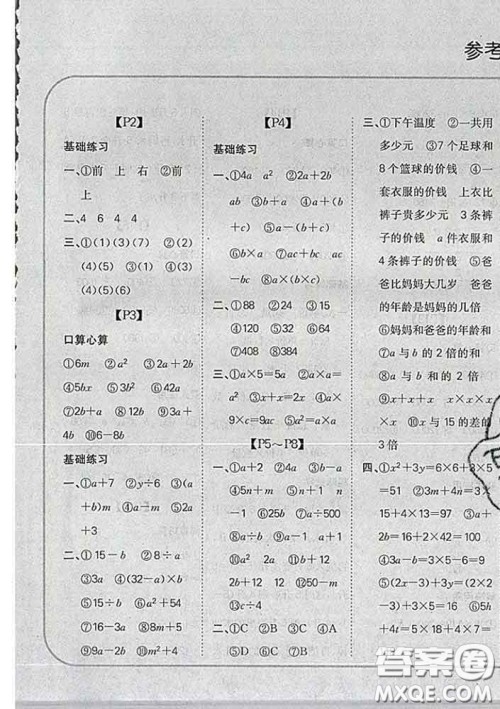 参考
【P2】
基础练习
一、①前 上 右 ②前
上
二、4 6 4 4
三、①(1)(3)(7) ②(2)
(4)(5) ③(1)(2)(3)
(4)(5)(6)
【P3】
口算心算
①6m ②a² ③2a+2b
④5bx ⑤3b² ⑥42a
⑦2b+a ⑧12b ⑨13a
4b ⑩6-8b
基础练习
一、①a+7 ②3a ③(a
+b)m ④m+15 ⑤2a
+3
二、①15-b ②8b-a
③3a ④(32-a)×b
⑤15÷b ⑥a²+54
⑦16-3a ⑧8m+5
⑨9a-2 ⑩16a-2b
【P4】
基础练习
一、①4a a² ②2a+2b
ab ③a+b ④a+(b
+c) ⑤a-(b+c)
⑥b×a ⑦a×c-b×
c ⑧a×(b×c)
二、①88 ②24 ③15
④120 ⑤132 ⑥52
⑦408 ⑧384
三、①a×5=5a ②a×a=
a² ③x+x=2x ④a×
9×c=9ac ⑤a×a=a²
【P5～P8】
一、①a+2 ②4a ③b-3
④5n+1 ⑤a²-b
⑥250a ⑦a÷500
⑧a-1 a+1 ⑨a+
2b ⑩a+5 ⑪10a+
2b+12 ⑫50-m
⑬c÷4
二、①C ②B ③C ④A
⑤D ⑥B ⑦B ⑧A
三、①下午温度 ②一共用
多少元 ③7 个足球和
8 个篮球的价钱 ④一
套衣服的价钱 上衣比
裤子贵多少元 3 条裤
子的价钱 a 件衣服和
4 条裤子的价钱 ⑤爸
爸比妈妈大几岁 爸爸
的年龄是妈妈的年龄
⑥妈妈和爸爸的年龄和
⑦a 与 b 的和的 2 倍
⑧a 与 b 的 2 倍的和
⑨x+x+x x×x×
x ⑩x 与 15 的差的
3 倍
四、①x²+3y=6×6+3×5
=51 ②2m+4n=3×
15+4×13=97 ③2a+
2b=16×2+42×2=116
④3x-y=3×6-9=9
⑤(2x-3)+2y=(2×
4-3)+5×2=15 ⑥5b
+4t=5×18+4×7=
答案圈
MXQE.COM